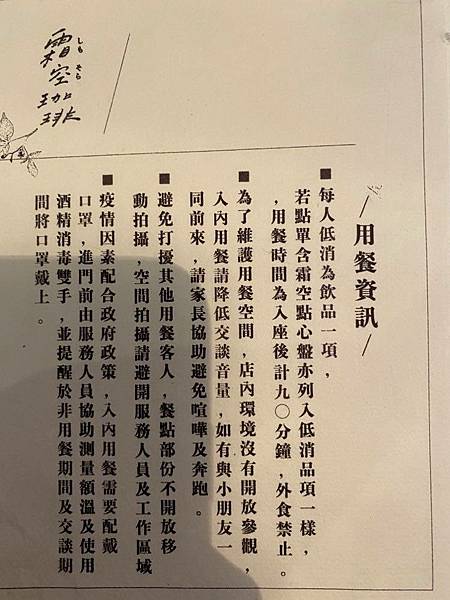 霜空珈琲
しも そら
/用餐資訊/
■每人低消為飲品一項，
若點單含霜空點心盤亦列入低消品項一樣，
，用餐時間為入座後計九〇分鐘，外食禁止。
■為了維護用餐空間，店內環境沒有開放參觀，
入內用餐請降低交談音量，如有與小朋友一
同前來，請家長協助避免喧嘩及奔跑。
■避免打擾其他用餐客人，餐點部份不開放移
動拍攝，空間拍攝請避開服務人員及工作區域
■疫情因素配合政府政策，入內用餐需要配戴
口罩，進門前由服務人員協助測量額溫及使用
酒精消毒雙手，並提醒於非用餐期間及交談期
間將口罩戴上。